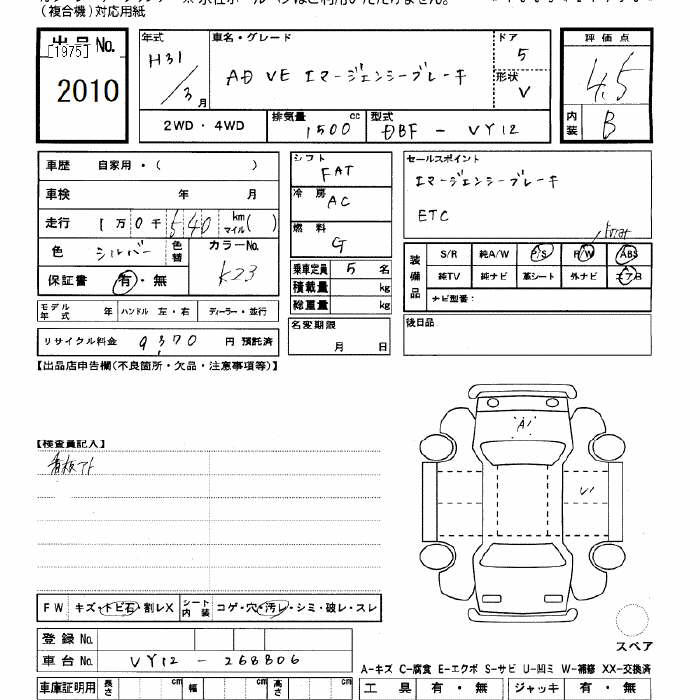 (複合機)対応用紙
出品No.
[1975]
2010
年式
H31/3月
車名・グレード
AD VE エマージェンシーブレーキ
ドア
5
形状
V
評価点
4.5
内装
B
2WD・4WD
排気量
1500cc
型式
DBF - VY12
車歴 自家用・( )
車検 年 月
走行 1万0千540 km マイル( )
色 シルバー 色替
カラーNo. K23
保証書 有・無
モデル年式 年 ハンドル 左・右 ディーラー・並行
リサイクル料金 9,370 円 預託済
シフト
FAT
冷房
AC
燃料
G
乗車定員 5 名
積載量 kg
総重量 kg
名変期限
月 日
セールスポイント
エマージェンシーブレーキ
ETC
装備品
S/R 純A/W P/S P/W ABS
純TV 純ナビ 革シート 外ナビ エアB
ナビ型番:
後日品
【出品店申告欄(不良箇所・欠品・注意事項等)】
【検査員記入】
看板アト
A1
U1
FW キズ・トビ石・割レX シート内装 コゲ・穴・汚レ・シミ・破レ・スレ
登録No.
車台No. VY12 - 268806
車庫証明用 長さ cm 幅 cm 高さ cm
スペア
A-キズ C-腐食 E-エクボ S-サビ U-凹ミ W-補修 XX-交換済
工具 有・無 ジャッキ 有・無